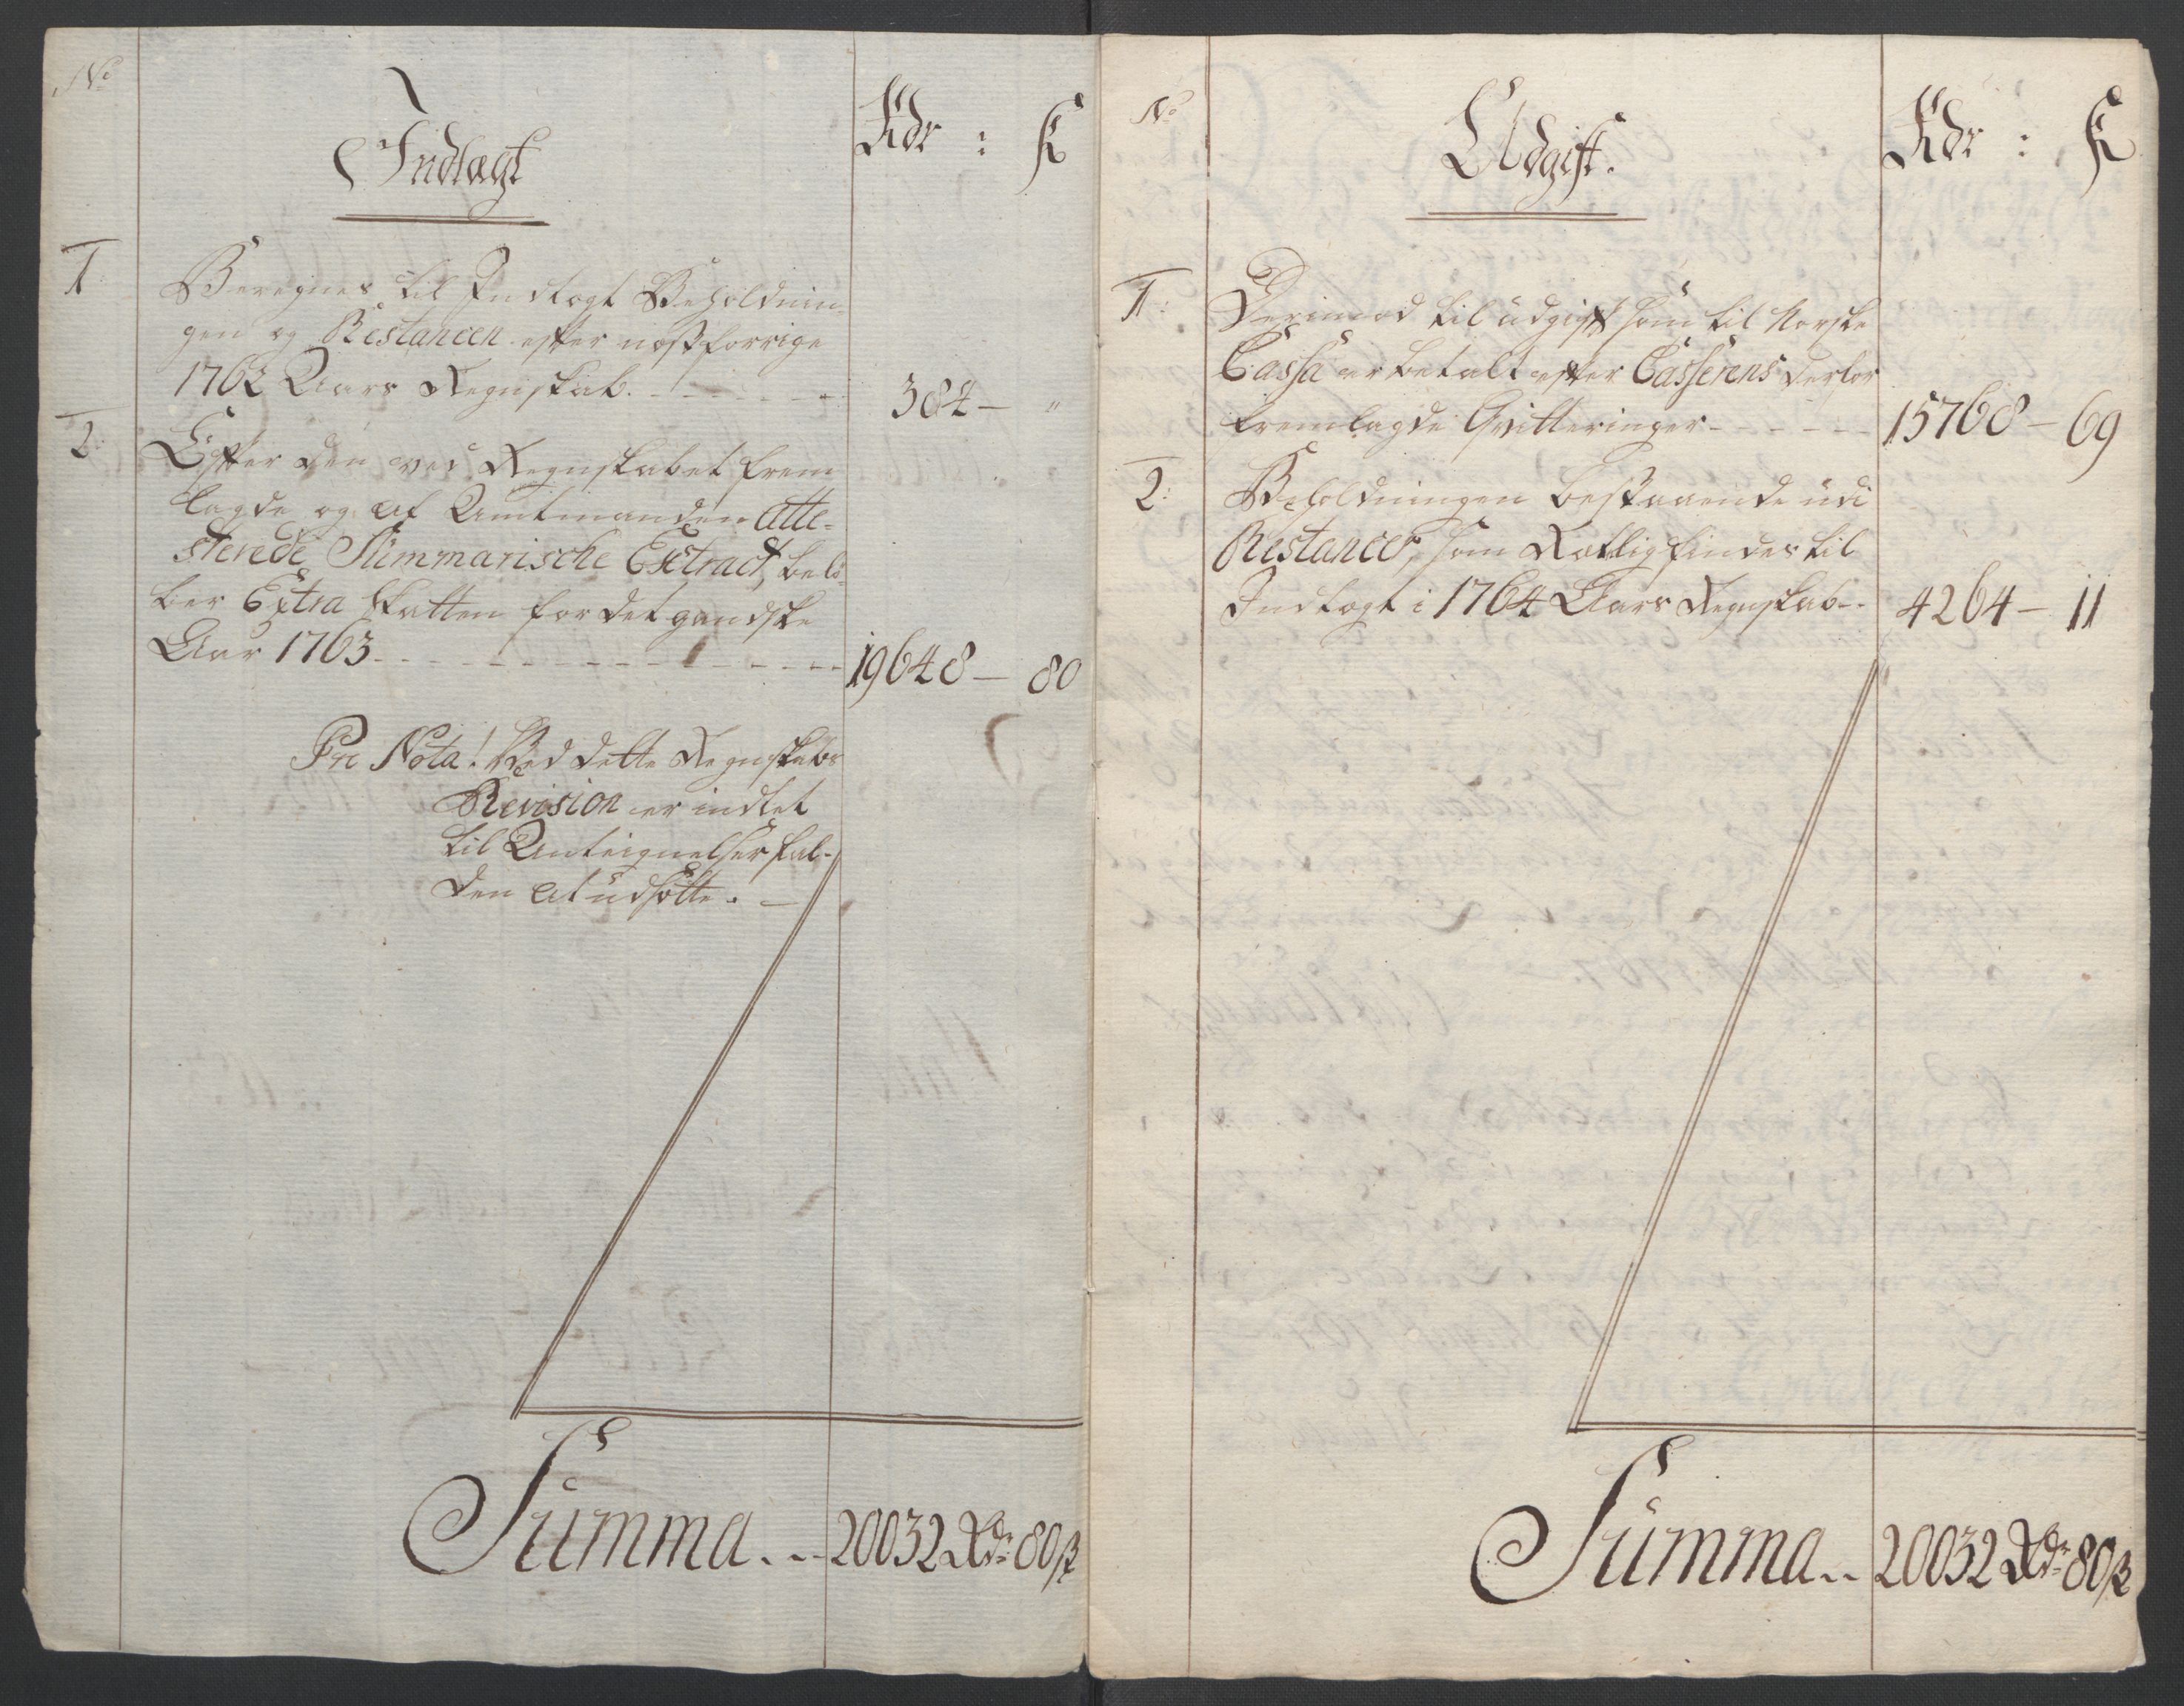 No
Indtægt
Rdr : ß
1.
Beregnes til Indtægt Beholdnin-
gen og Restancen efter næstforrige
1762 Aars Regnskab. - - - - - -
384 — "
2.
Efter den ved Regnskabet frem
lagde og af Amtmanden Atte-
sterede Summarische Extract, belö-
ber Extra Skatten for det gandske
Aar 1763 - - - - - - - - - -
19648 — 80
Pr Nota! Ved dette Regnskabs
Revision er indtet
til Anteignelser fal-
den at udsætte. —
Summa . . . 20032 Rdr 80 ß
No
Udgift.
Rdr : ß
1:
Derimod til udgift som til Norske
Cassa er betalt efter Casserens derfor
fremlagde Qvitteringer - - - - - -
15768 — 69
2:
Beholdningen bestaaende udi
Restancer, som Rætlig findes til
Indtægt i 1764 Aars Regnskab - .
4264 — 11
Summa . . 20032 Rdr 80 ß